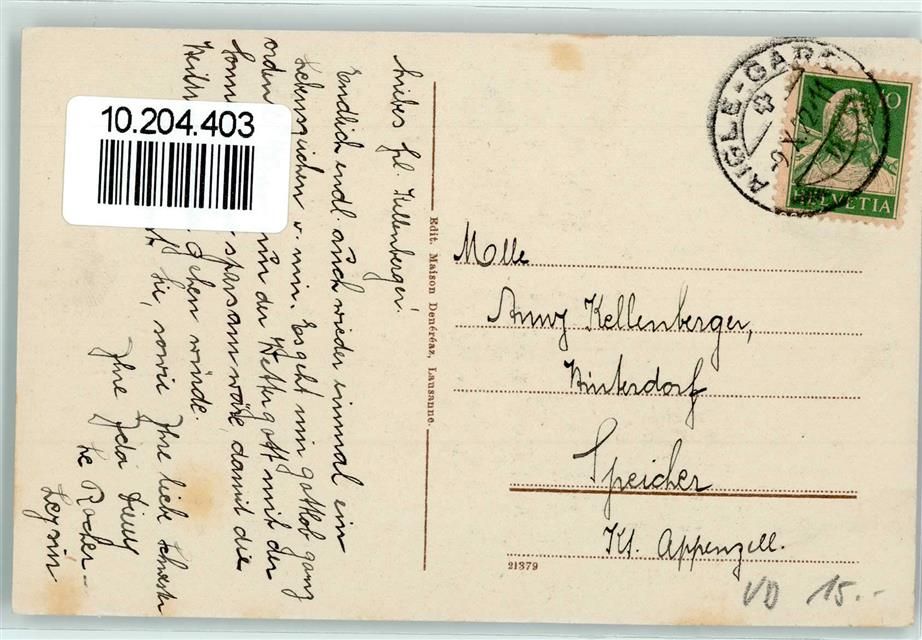 10.204.403
Liebes Frl. Kellenberger!
Endlich endl. auch wieder einmal ein
Lebenszeichen v. mir. Es geht mir gottlob ganz
orden nur der Wettergott mit der
Sonn sparsam wäre, damit die
gehen würde.
Sie, sowie Ihre lieb. Schwester
Ihre Ida
Le Rocher -
Leysin
Edit. Maison Denéréaz, Lausanne.
AIGLE-GARE
10
HELVETIA
Mlle
Anny Kellenberger,
Hinterdorf
Speicher
Kt. Appenzell.
21379
VD 15.-